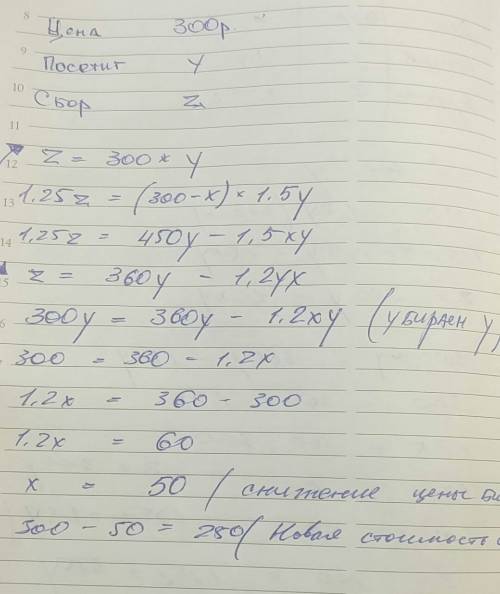 8
Цена 300р.
9
Посетит y
10
Сбор z
11
12 z = 300 * y
13 1.25z = (300-x) * 1.5y
14 1,25z = 450y - 1,5xy
15 z = 360y - 1,2yx
6 300y = 360y - 1.2xy (убираем y)
300 = 360 - 1.2x
1.2x = 360 - 300
1.2x = 60
x = 50 (снижение цены
300 - 50 = 250 (Новая стоимость